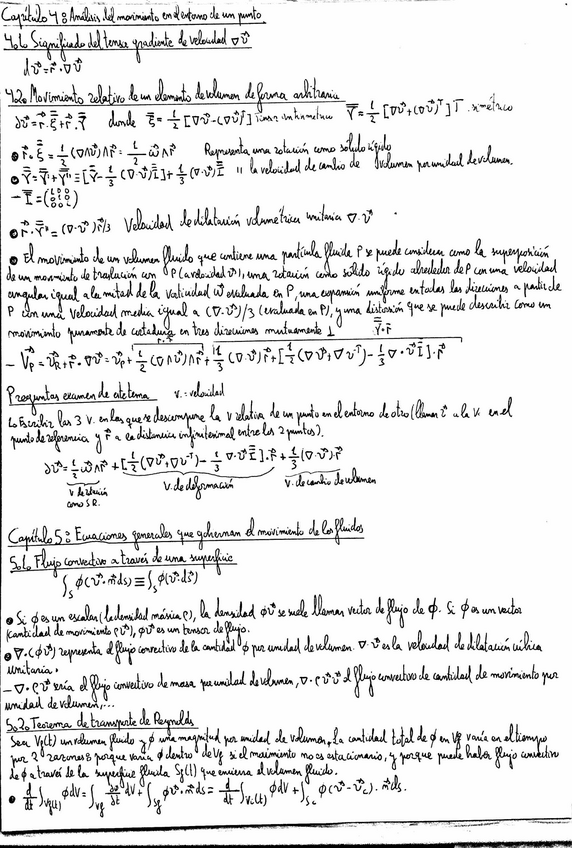 Capítulo 4: Análisis del movimiento en el entorno de un punto
4.1. Significado del tensor gradiente de velocidad ∇v⃗
dv⃗ = r⃗·∇v⃗
4.2. Movimiento relativo de un elemento de volumen de forma arbitraria
dv⃗ = r⃗·ξ̿ + r⃗·γ̿ donde ξ̿ = 1/2 [∇v⃗-(∇v⃗)ᵀ] Tensor antisimétrico γ̿ = 1/2 [∇v⃗+(∇v⃗)ᵀ] T. simétrico
• r⃗·ξ̿ = 1/2 (∇∧v⃗)∧r⃗ = 1/2 ω⃗∧r⃗ Representa una rotación como sólido rígido
• γ̿ = γ̿'+γ̿'' = [γ̿ - 1/3 (∇·v⃗)I̿] + 1/3 (∇·v⃗)I̿ " la velocidad de cambio de volumen por unidad de volumen.
- I̿ = (1 0 0 / 0 1 0 / 0 0 1)
• r⃗·γ̿'' = (∇·v⃗)r⃗/3 Velocidad de dilatación volumétrica unitaria ∇·v⃗
• El movimiento de un volumen fluido que contiene una partícula fluida P se puede considerar como la superposición
de un movimiento de traslación con P (a velocidad v⃗), una rotación como sólido rígido alrededor de P con una velocidad
angular igual a la mitad de la vorticidad ω⃗ evaluada en P, una expansión uniforme en todas las direcciones a partir de
P con una velocidad media igual a (∇·v⃗)/3 (evaluada en P), y una distorsión que se puede describir como un
movimiento puramente de cortadura en tres direcciones mutuamente ⊥
- v⃗p = v⃗R + r⃗·∇v⃗ = v⃗p + 1/2 (∇∧v⃗)∧r⃗ + 1/3 (∇·v⃗)r⃗ + [1/2 (∇v⃗+∇v⃗ᵀ) - 1/3 ∇·v⃗ I̿]·r⃗
Preguntas examen de este tema v. = velocidad
↳ Escribir las 3 v. en las que se descompone la v relativa de un punto en el entorno de otro (llamar v⃗ a la v. en el
punto de referencia y r⃗ a la distancia infinitesimal entre los 2 puntos).
dv⃗ = 1/2 ω⃗∧r⃗ + [1/2 (∇v⃗+∇v⃗ᵀ) - 1/3 ∇·v⃗ I̿]·r⃗ + 1/3 (∇·v⃗)·r⃗
v de rotación como S.R. v. de deformación v. de cambio de volumen
Capítulo 5: Ecuaciones generales que gobiernan el movimiento de los fluidos
5.1. Flujo convectivo a través de una superficie
∫s φ(v⃗·n⃗ds) ≡ ∫s φ(v⃗·ds⃗)
• Si φ es un escalar (la densidad másica ρ), la densidad φv⃗ se suele llamar vector de flujo de φ. Si φ es un vector
(cantidad de movimiento ρv⃗), φv⃗ es un tensor de flujo.
• ∇·(φv⃗) representa el flujo convectivo de la cantidad φ por unidad de volumen. ∇·v⃗ es la velocidad de dilatación cúbica
unitaria.
- ∇·ρv⃗ sería el flujo convectivo de masa por unidad de volumen, ∇·ρv⃗v⃗ el flujo convectivo de cantidad de movimiento por
unidad de volumen,...
5.2. Teorema de transporte de Reynolds
Sea Vf(t) un volumen fluido y φ una magnitud por unidad de volumen. La cantidad total de φ en Vf varía en el tiempo
por 2 razones: porque varía φ dentro de Vf si el movimiento no es estacionario, y porque puede haber flujo convectivo
de φ a través de la superficie fluida Sf(t) que encierra el volumen fluido.
• d/dt ∫Vf(t) φdV = ∫Vf ∂φ/∂t dV + ∫Sf φv⃗·n⃗ds = d/dt ∫Vc(t) φdV + ∫Sc φ(v⃗-v⃗c)·n⃗ds.